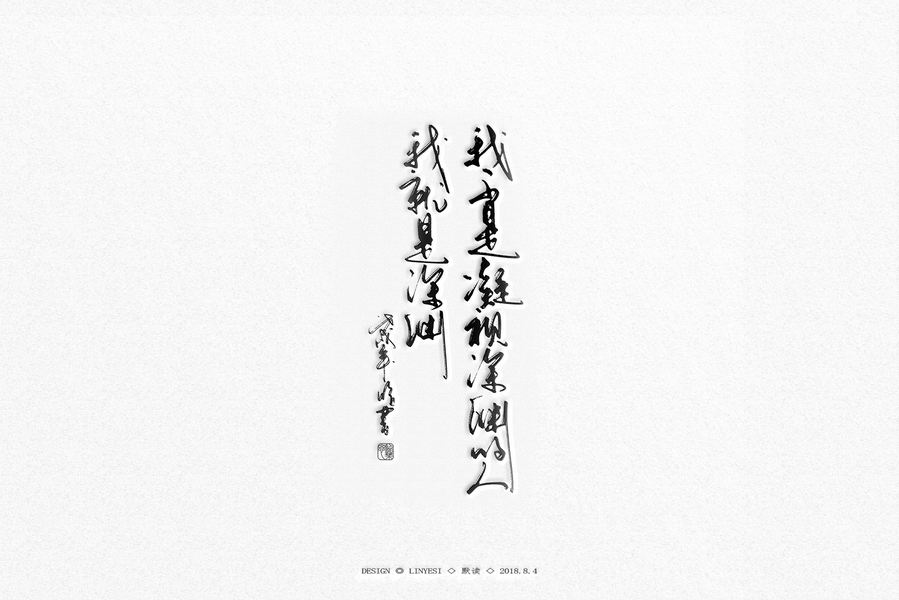 我不是凝视深渊的人
我就是深渊
DESIGN ◎ LINYESI ◇ 默读 ◇ 2018.8.4